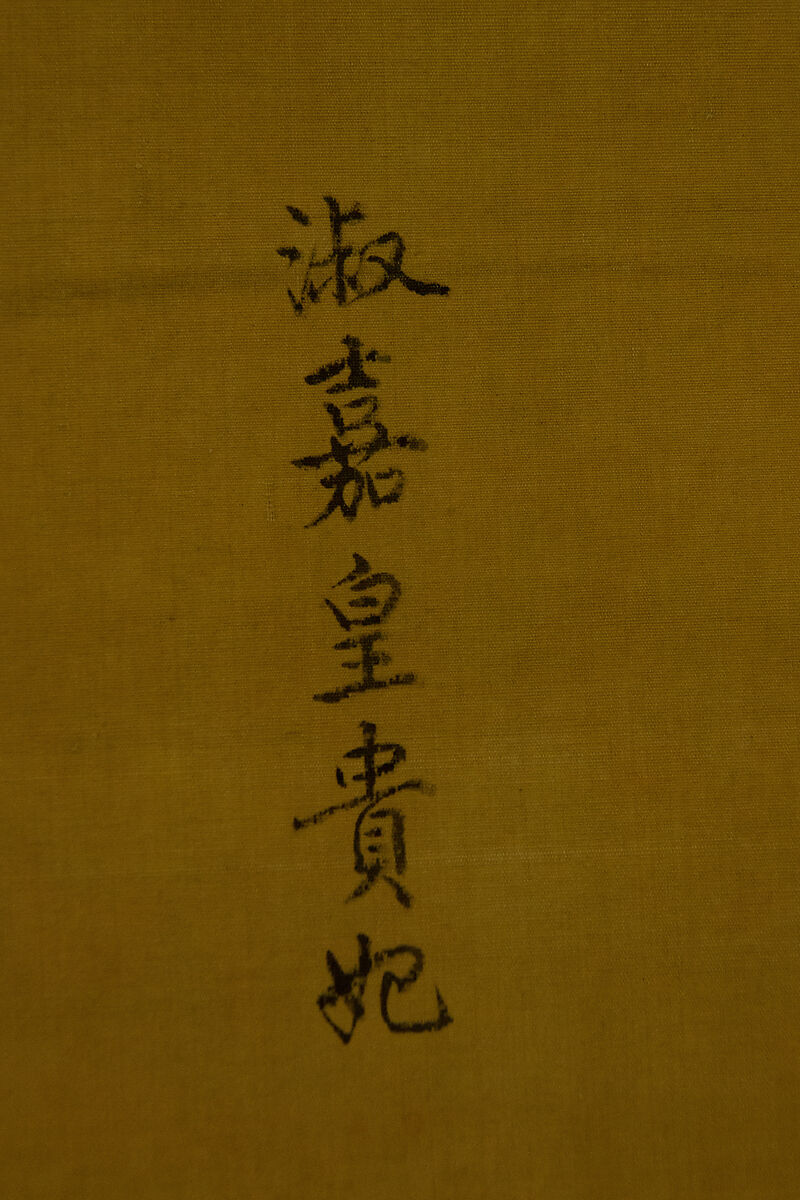 淑嘉皇貴妃